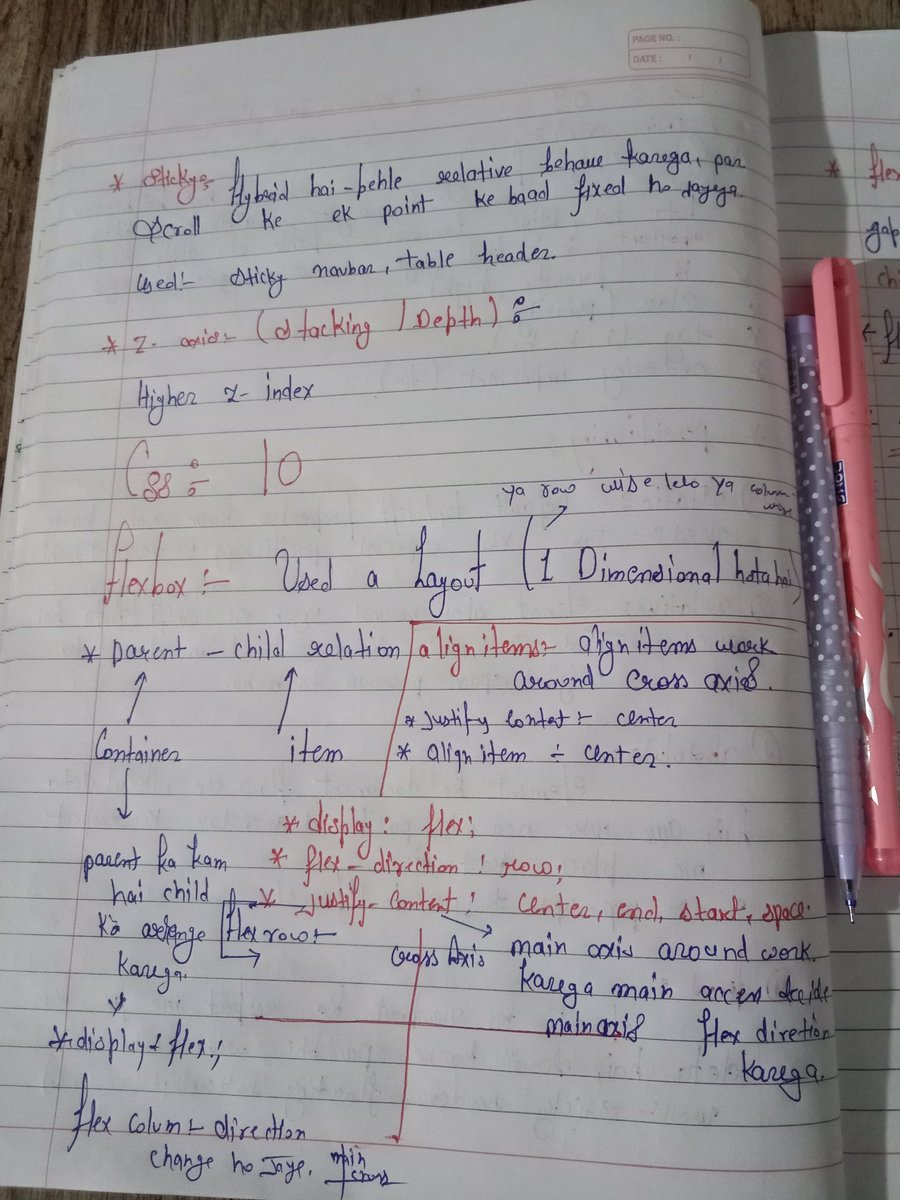 PAGE NO. :
DATE : / /
* Sticky:- Hybrid hai - pehle relative behave karega, par
scroll ke ek point ke baad fixed ho jayega.
Used:- Sticky navbar, table header.
* Z-axis:- (Stacking / Depth) :-
Higher z-index
Css :- 10
ya row wise lelo ya column wise
flexbox :- Used a Layout (1 Dimensional hota hai)
* parent - child relation
Container
item
align items:- align items work
around cross axis.
* Justify contet :- center
* align item :- center.
parent ka kam
hai child
ka arrenge
karega.
* display : flex;
* display : flex;
* flex - direction : row;
* Justify-content : center, end, start, space.
flex row :-
Cross Axis
main axis around work
karega main acces decide
main axis flex diretion
karega.
flex colum :- direction
change ho Jaye.
main
cross
* flex
gap
chi
fl